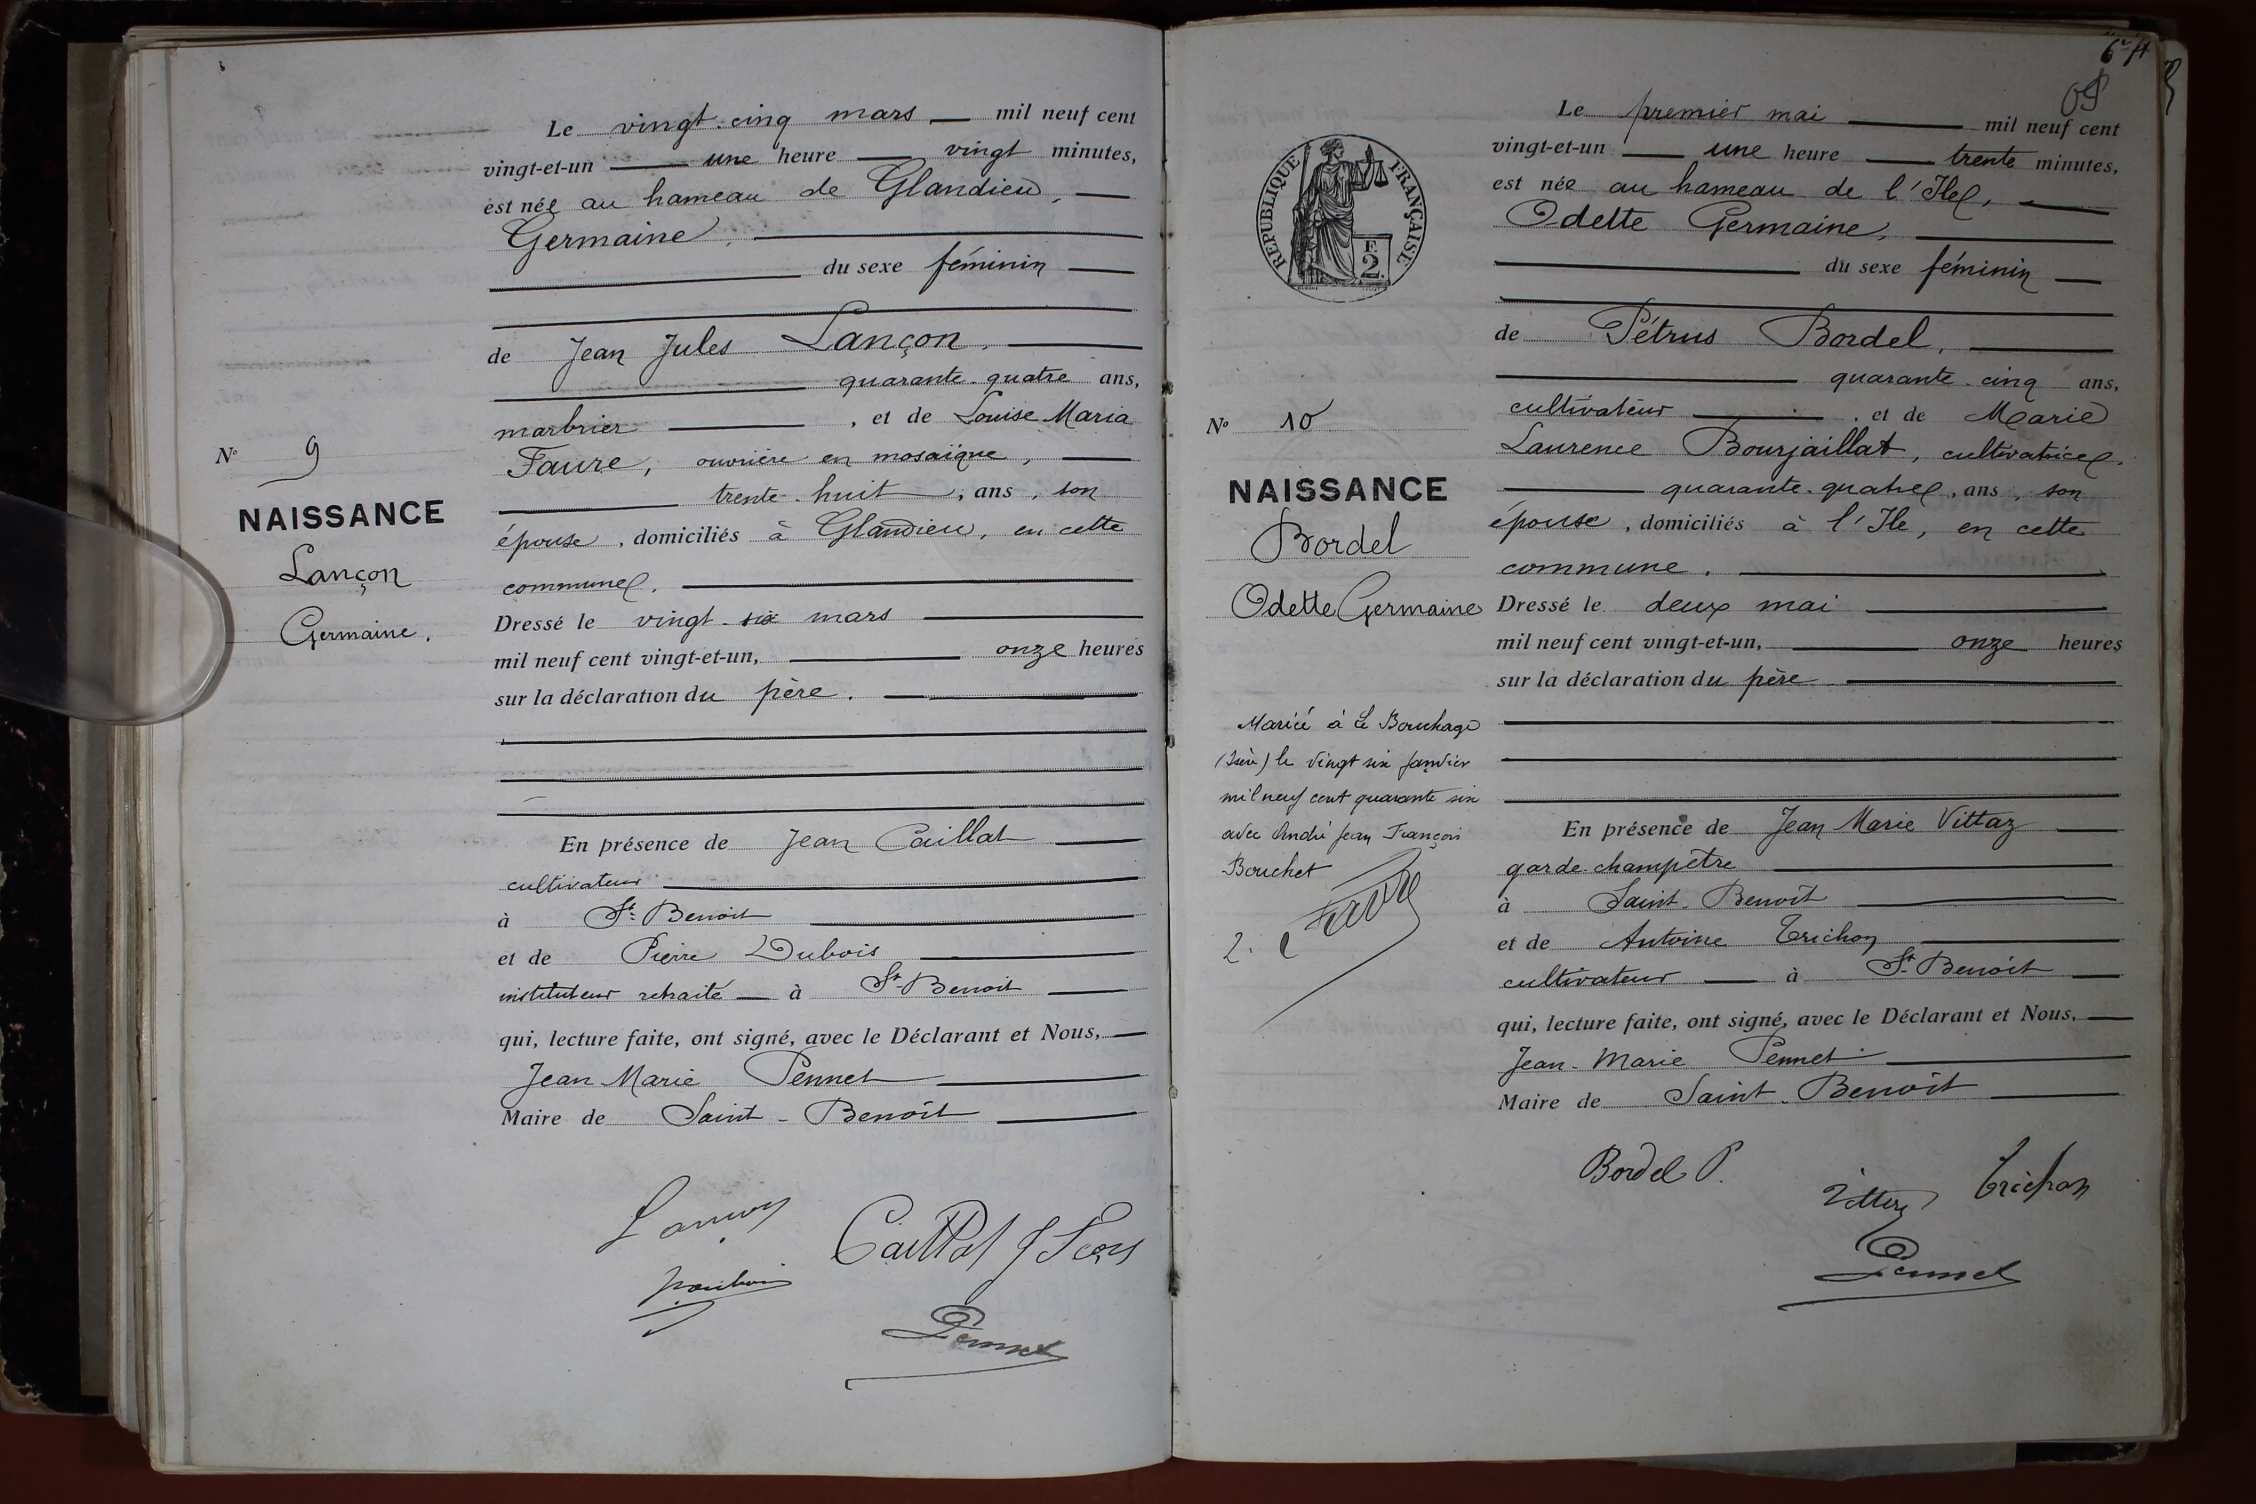 Le vingt-cinq mars mil neuf cent
vingt-et-un une heure vingt minutes,
est née au hameau de Glandieu,
Germaine,
du sexe féminin
de Jean Jules Lançon,
quarante-quatre ans,
marbrier, et de Louise Maria
Faure, ouvrière en mosaïque,
trente-huit, ans, son
épouse, domiciliés à Glandieu, en cette
commune.
Dressé le vingt-six mars
mil neuf cent vingt-et-un, onze heures
sur la déclaration du père.
En présence de Jean Caillat
cultivateur
à St Benoit
et de Pierre Dubois
instituteur retraité à St Benoit
qui, lecture faite, ont signé, avec le Déclarant et Nous,
Jean Marie Pennet
Maire de Saint-Benoît
No 9
NAISSANCE
Lançon
Germaine.
Pennet
6
RÉPUBLIQUE FRANÇAISE
F.
2
Le premier mai mil neuf cent
vingt-et-un une heure trente minutes,
est née au hameau de l'Ile,
Odette Germaine,
du sexe féminin
de Pétrus Bordel,
quarante-cinq ans,
cultivateur, et de Marie
Laurence Bourjaillat, cultivatrice,
quarante-quatre, ans, son
épouse, domiciliés à l'Ile, en cette
commune.
Dressé le deux mai
mil neuf cent vingt-et-un, onze heures
sur la déclaration du père
En présence de Jean Marie Vittaz
garde-champêtre
à Saint-Benoît
et de Antoine Trichon
cultivateur à St Benoît
qui, lecture faite, ont signé, avec le Déclarant et Nous,
Jean-Marie Pennet
Maire de Saint-Benoît
No 10
NAISSANCE
Bordel
Odette Germaine
Mariée à Le Bouchage
(Isère) le vingt six janvier
mil neuf cent quarante six
avec André Jean François
Bouchet
Favre
Bordel P.
Trichon
Pennet